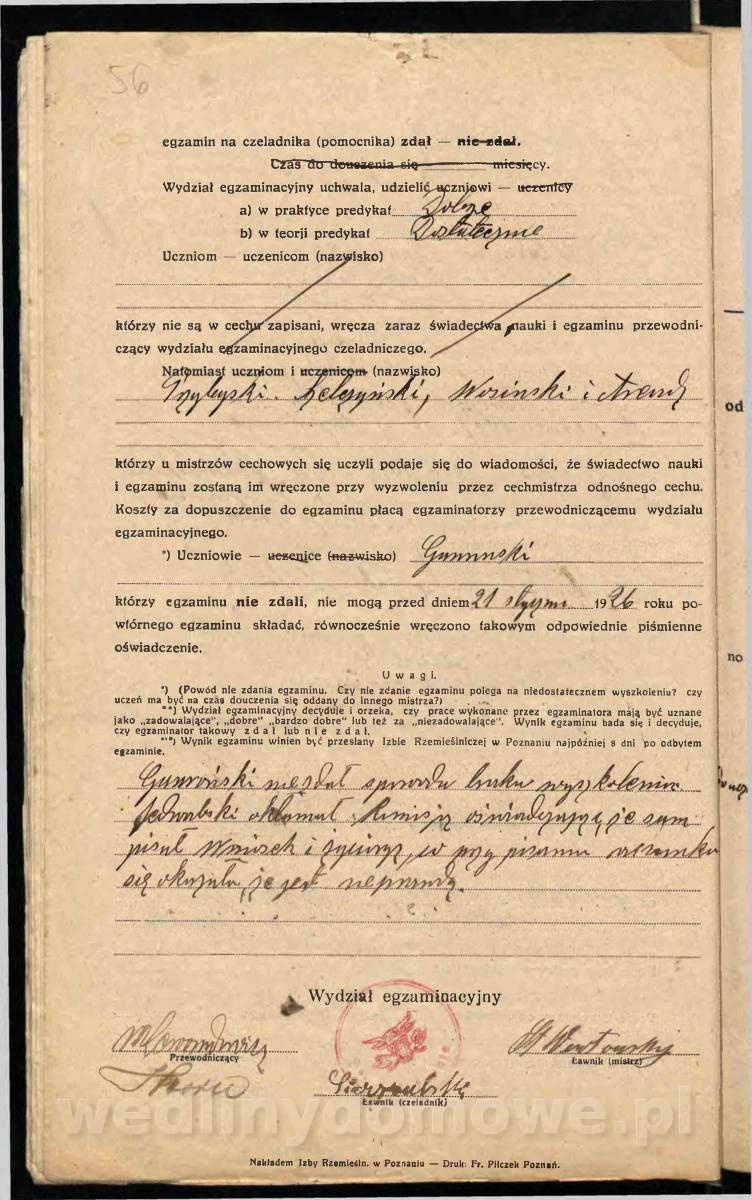 56
egzamin na czeladnika (pomocnika) zdał — nie zdał.
Czas do douczenia się miesięcy.
Wydział egzaminacyjny uchwala, udzielić uczniowi — uczenicy
a) w praktyce predykat Dobrze
b) w teorji predykat Dostatecznie
Uczniom — uczenicom (nazwisko)
którzy nie są w cechu zapisani, wręcza zaraz świadectwa nauki i egzaminu przewodni-
czący wydziału egzaminacyjnego czeladniczego.
Natomiast uczniom i uczenicom (nazwisko)
Wosinski i
którzy u mistrzów cechowych się uczyli podaje się do wiadomości, że świadectwo nauki
i egzaminu zostaną im wręczone przy wyzwoleniu przez cechmistrza odnośnego cechu.
Koszty za dopuszczenie do egzaminu płacą egzaminatorzy przewodniczącemu wydziału
egzaminacyjnego.
*) Uczniowie — uczenice (nazwisko)
którzy egzaminu nie zdali, nie mogą przed dniem 21 1926 roku po-
wtórnego egzaminu składać, równocześnie wręczono takowym odpowiednie piśmienne
oświadczenie.
Uwagi.
*) (Powód nie zdania egzaminu. Czy nie zdanie egzaminu polega na niedostatecznem wyszkoleniu? czy
uczeń ma być na czas douczenia się oddany do innego mistrza?)
**) Wydział egzaminacyjny decyduje i orzeka, czy prace wykonane przez egzaminatora mają być uznane
jako „zadowalające", „dobre" „bardzo dobre" lub też za „niezadowalające". Wynik egzaminu bada się i decyduje,
czy egzaminator takowy zdał lub nie zdał.
***) Wynik egzaminu winien być przesłany Izbie Rzemieślniczej w Poznaniu najpóźniej 8 dni po odbytem
egzaminie.
niezdał spowodu braku wyszkolenia.
okłamał Komisją oświadczając, że sam
pisał Wniosek i życiorys, w przy pisaniu
się okazało, że jest nieprawdą.
Wydział egzaminacyjny
Przewodniczący
Ławnik (mistrz)
Ławnik (czeladnik)
wedlinydomowe.pl
Nakładem Izby Rzemieśln. w Poznaniu — Druk: Fr. Pilczek Poznań.
od
no